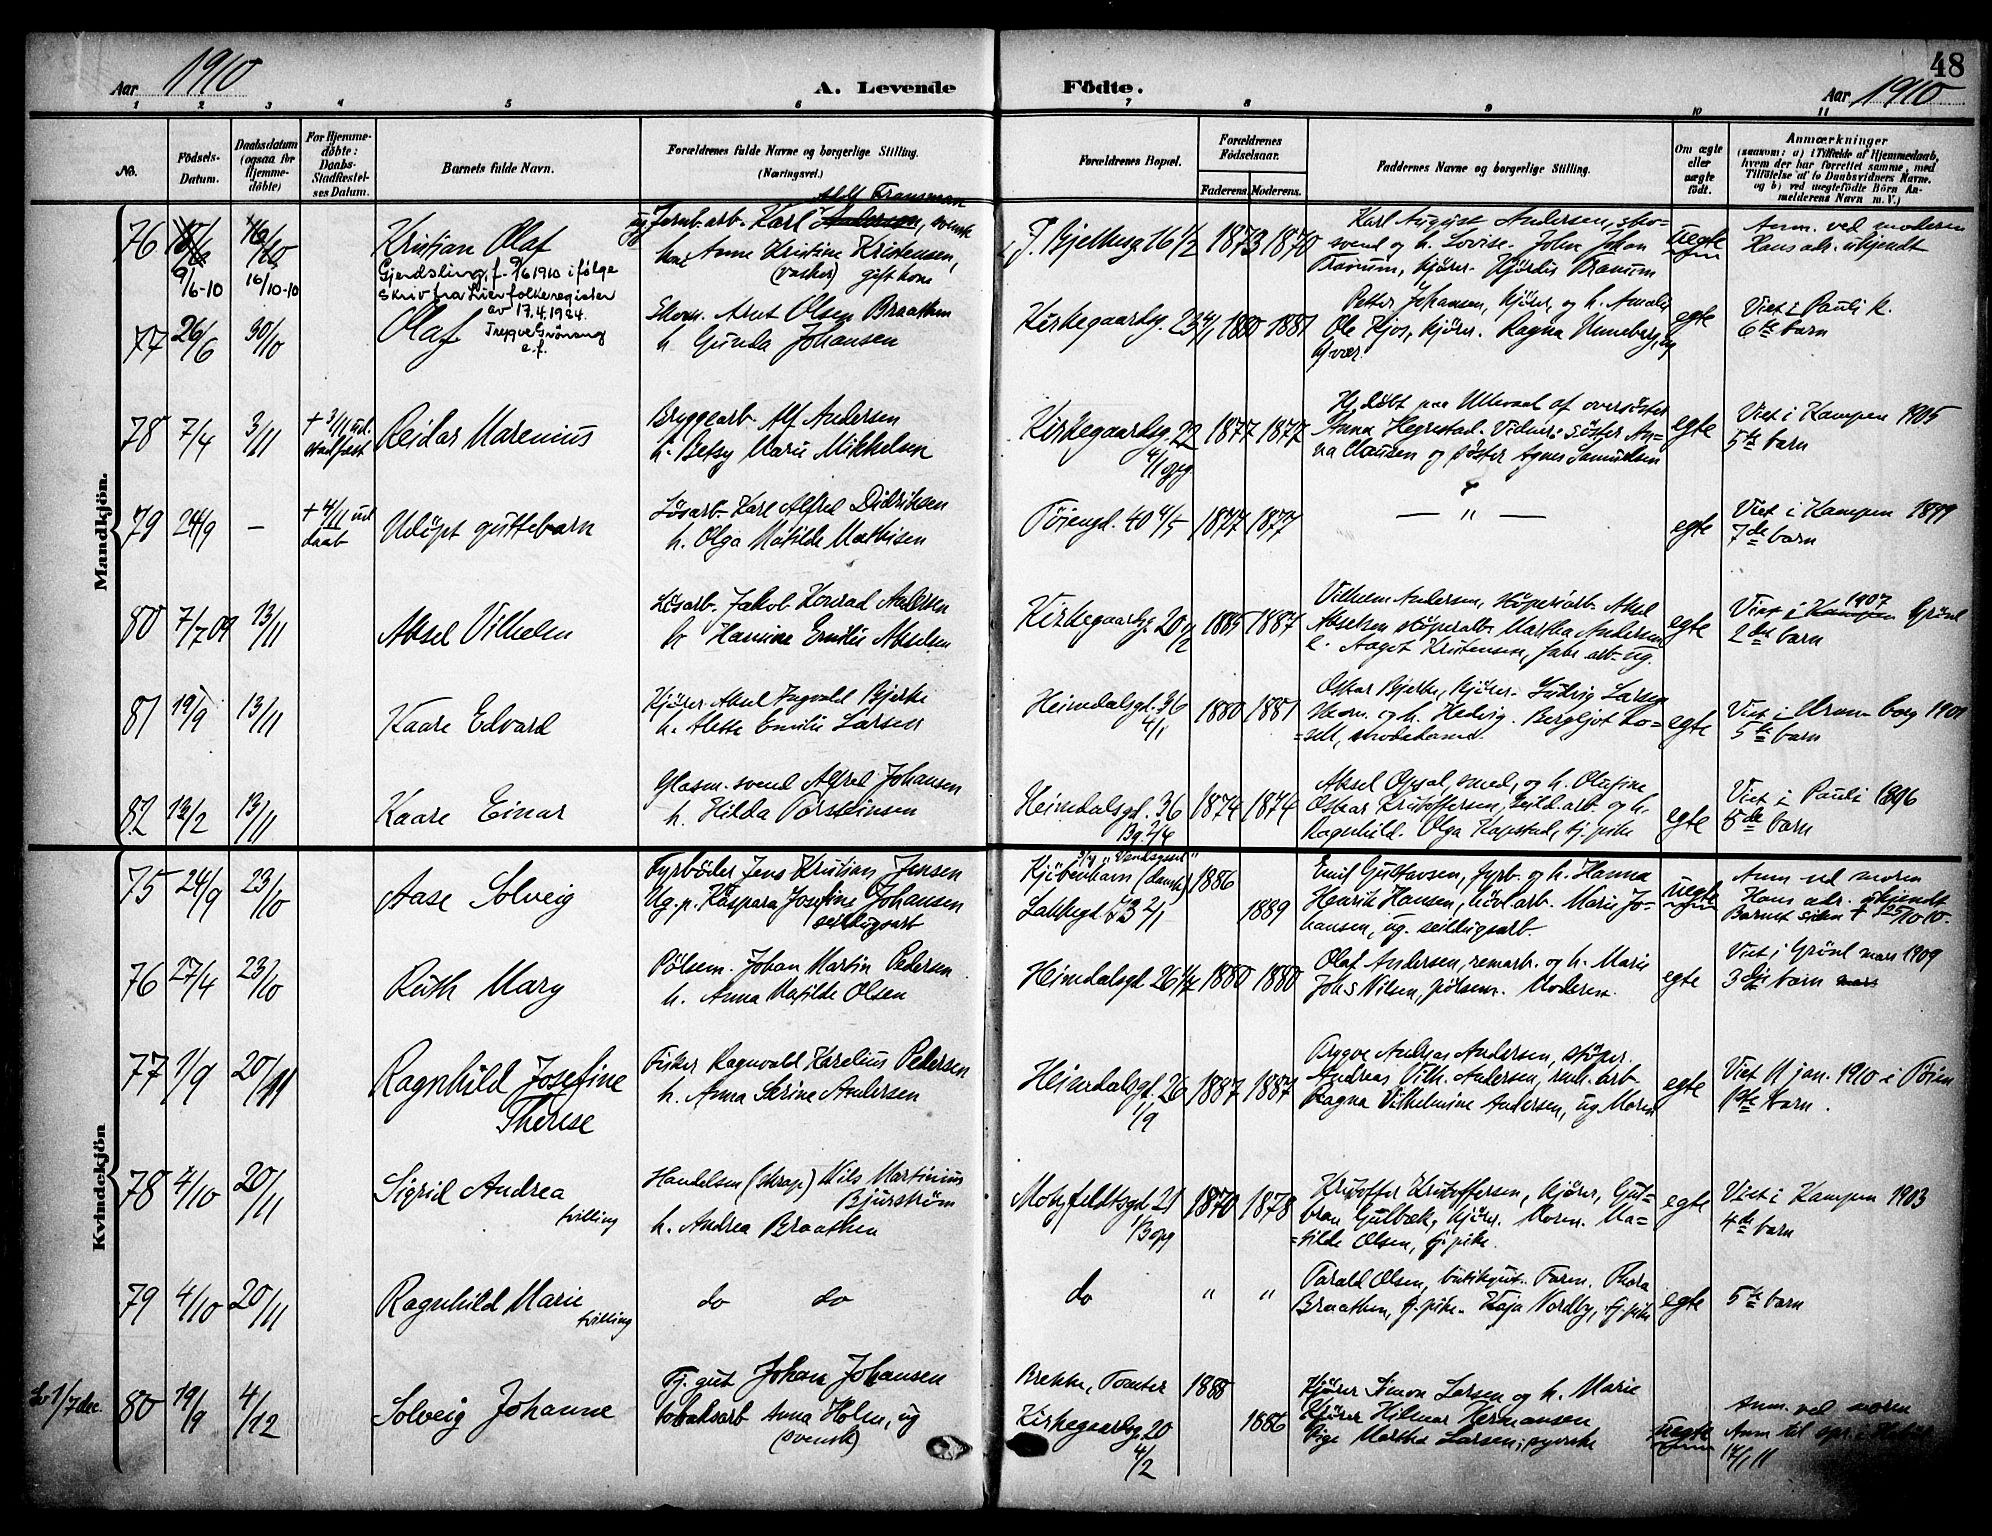 48
Aar 1910
A. Levende
Födte.
Aar 1910
1 2 3 4 5 6 7 8 9 10 11
No.
Födsels-
Datum.
Daabsdatum
(ogsaa for
Hjemme-
döbte)
For Hjemme-
döbte:
Daabs-
Stadfæstel-
ses Datum.
Barnets fulde Navn.
Forældrenes fulde Navne og borgerlige Stilling.
(Næringsvei.)
Forældrenes Bopæl.
Forældrenes
Födselsaar.
Faderens. Moderens.
Faddernes Navne og borgerlige Stilling.
Om ægte
eller
uægte
födt.
Anmærkninger
(saasom: a) i Tilfælde af Hjemmedaab,
hvem der har forrettet samme, med
Tilföielse af to Daabsvidners Navne,
og b) ved uægtefödte Börn An-
melderens Navn m. V.)
Mandkjön.
76
9/6-10
16/10-10
Kristian Olaf
Gjendsling, f. 9/6 1910 i følge
skriv fra Lier folkeregister
av 17.4.1924.
e.f.
Jernb.arb. Karl Andersen, svensk
Anne Kristine Kristensen,
(vasker) gift kone
16 1/2
1873 1870
Karl August Andersen, sko-
svend og h. Lovise. John Johan
Tranum, kjörer. Hjördis Tranum
uegte
Anm. ved moderen
Hans adr. ubekjendt
77 26/6 30/10 Olaf
Skom. Arnt Olsen Braathen
h. Gunda Johansen
Kirkegaardsg. 23 4/1 1880 1881
Petter Johansen, kjörer, og h. Amalie
Ole Hjos, kjörer. Ragna Unneberg, ug
egte
Viet i Pauli k.
6te barn
78 7/4 3/11
+ 3/11 ud.
stadfæst
Reidar Marenius
Bryggearb. Alf Andersen
h. Betsy Marie Mikkelsen
Kirkegaardsg. 22
4/1 opg
1877 1877
Hj. döbt paa Ullevaal af oversöster
Anna Hegrestad. Vidner: söster An-
na Clausen og söster Agnes Samuelsen
egte
Viet i Kampen 1905
5te barn
79 24/9 —
+ 4/11 ud
daab
Udöpt guttebarn
Lösarb. Karl Alfred Didriksen
h. Olga Matilde Mathisen
Töiengd. 40 4/5 1827 1877
— " —
egte
Viet i Kampen 1899
7de barn
80 7/7 09 13/11 Aksel Vilhelm
Lösarb. Jakob Konrad Andersen
h. Hanine Emilie Akselsen
Kirkegaardsg. 20 1/2
1885 1887
Vilhelm Andersen, stöperiarb. Aksel
Akselsen stöperiarb. Martha Andersen
Aaget Kristensen, fabr. arb. ug.
egte
Viet i Kampen 1907 Grönl
2det barn
81 19/9 13/11 Kaare Edvard
Kjörer Aksel Ingvald Bjerke
h. Alette Emilie Larsen
Heimdalsgd. 36
4/1
1880 1881
Oskar Bjerke, kjörer. Ludvig Larsen
skom. og h. Hedvig. Bergljot
egte
5te barn
82 13/2 13/11 Kaare Einar
Glasm. svend Alfred Johansen
h. Hilda Torsteinsen
Heimdalsgd. 36
Bg. 2/4
1874 1874
Aksel Opsal, smed, og h. Olufine
Oskar Kristoffersen, seild. arb og h.
Ragnhild. Olga Kopstad, tj. pike
egte
Viet i Pauli 1896
8de barn
Kvindekjön
75 24/9 23/10 Aase Solveig
Fyrböder Jens Kristian Jensen
Ug. p. Kaspara Josefine Johansen
seildugsarb
Kjöbenhavn (dansk)
Lakkegd 73 2/1
1886
1889
Emil Gustavsen, fyrb. og h. Hanna
Henrik Hansen, hövl. arb. Marie Jo-
hansen, ug. seildugsarb.
uegte
Anm ved moren
Hans adr. ubekjendt
Barnet siden + 25/10 10.
76 27/4 23/10 Ruth Mary
Pölsem. Johan Martin Pedersen
h. Anna Matilde Olsen
Heimdalsgd 26 4/4 1880 1880
Olaf Andersen, remarb. og h. Marie
Johs Nilsen, pölsem. Moderen.
egte
Viet i Grönl mars 1909
3dje barn
77 1/9 20/11
Ragnhild Josefine
Therese
Fisker Ragnvald Karelius Pedersen
h. Anna Serine Andersen
Heimdalsgd. 26
1/9
1887 1887
Trygve Andreas Andersen, stöper.
Andreas Vilh. Andersen, renh. arb.
Ragna Vilhelmine Andersen, ug Moren
egte
Viet 11 jan. 1910 i Töien
1ste barn.
78 4/10 20/11
Sigrid Andrea
tvilling
Handelsm (skrap) Nils Martinius
Bjurström
h. Andrea Braathen
Motzfeldtsgd 21
1/3 opg
1870 1878
Kristoffer Kristoffersen, kjörer, Gut-
bran Gulbæk, kjörer. Moren. Ma-
tilde Olsen, tj. pike.
egte
Viet i Kampen 1903
4de barn
79 4/10 20/11
Ragnhild Marie
tvilling
do do
do " "
Tarald Olsen, butikgut. Farm. Thora
Braathen, tj. pike. Kaja Nordby, tj. pike
egte
5te barn
7 dec.
80 19/9 4/12 Solveig Johanne
Tj. gut Johan Johansen
tobaksarb Anna Holm, ug
(svensk)
Brekke, Tomter
Kirkegaardsg 20
4/2
1888
1886
Kjörer Simon Larsen og h. Marie
Kjörer Hilmar Hermansen
Pige Martha Larsen, syerske
uegte
Anm. ved moren